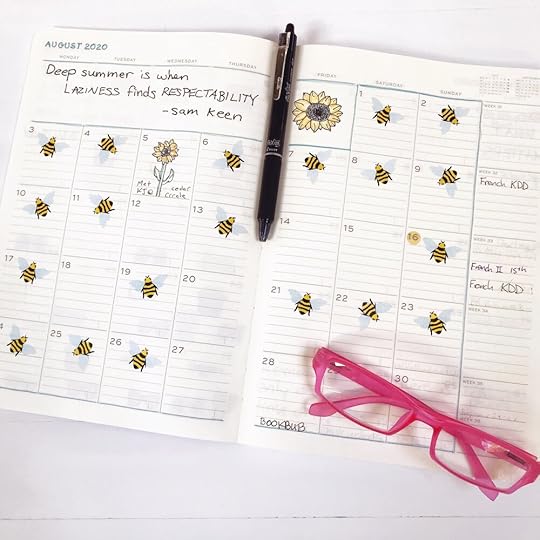 AUGUST 2020
MONDAY TUESDAY WEDNESDAY THURSDAY FRIDAY SATURDAY SUNDAY
Deep summer is when
LAZINESS finds RESPECTABILITY
-sam keen
1 2
3 4 5 6 7 8 9
Met
KJQ
cedar
Circle
French KDD
10 11 12 13 14 15 16
French II 15th
French KDD
17 18 19 20 21 22 23
25 26 27 28 30
BOOKBUB